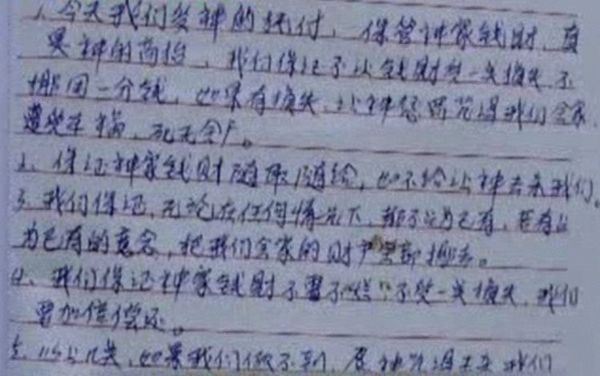 1、今天我们受神的托付,保管神家钱财,真
是神的高抬,我们保证不让钱财受一点损失,不
挪用一分钱,如果有损失,让神惩罚咒诅我们全家
遭受车祸,死无全尸。
2、保证神家钱财随取随给,如不给让神击杀我们。
3、我们保证,无论在任何情况下,都不占为己有,若有占
为己有的意念,把我们全家的财产全部搬去。
4、我们保证神家钱财不受一点损失,我们
要加倍偿还。
5、以上几点,如果我们做不到,愿神咒诅击杀我们